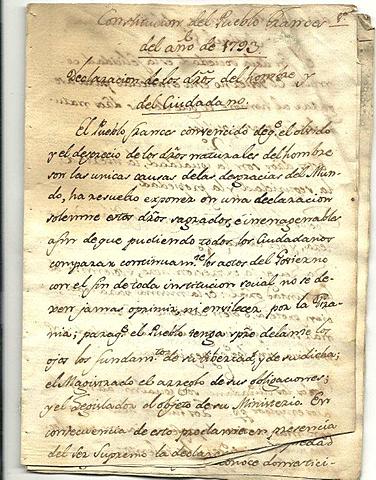 Constitucion del Pueblo Frances
del año de 1793
Declaracion de los dros del hombre y
del Ciudadano.
El Pueblo frances convencido de q.e el olvido
y el desprecio de los dros naturales del hombre
son las unicas causas de las desgracias del Mun-
do, ha resuelto exponer en una declaracion
solemne estos dros sagrados, e inenagenables
a fin de que pudiendo todos los Ciudadanos
comparar continuam.te los actos del Govierno
con el fin de toda institucion social no se de-
xen jamas oprimir, ni envilecer por la Tira-
nia; para q.e el Pueblo tenga spre delante los
ojos los fundam.tos de su libertad, y de su dicha;
el Magistrado el arreglo de sus obligaciones;
y el Legislador el objeto de su Ministerio. En
consecuencia de esto proclama en presencia
del Ser Supremo la declara
conoce